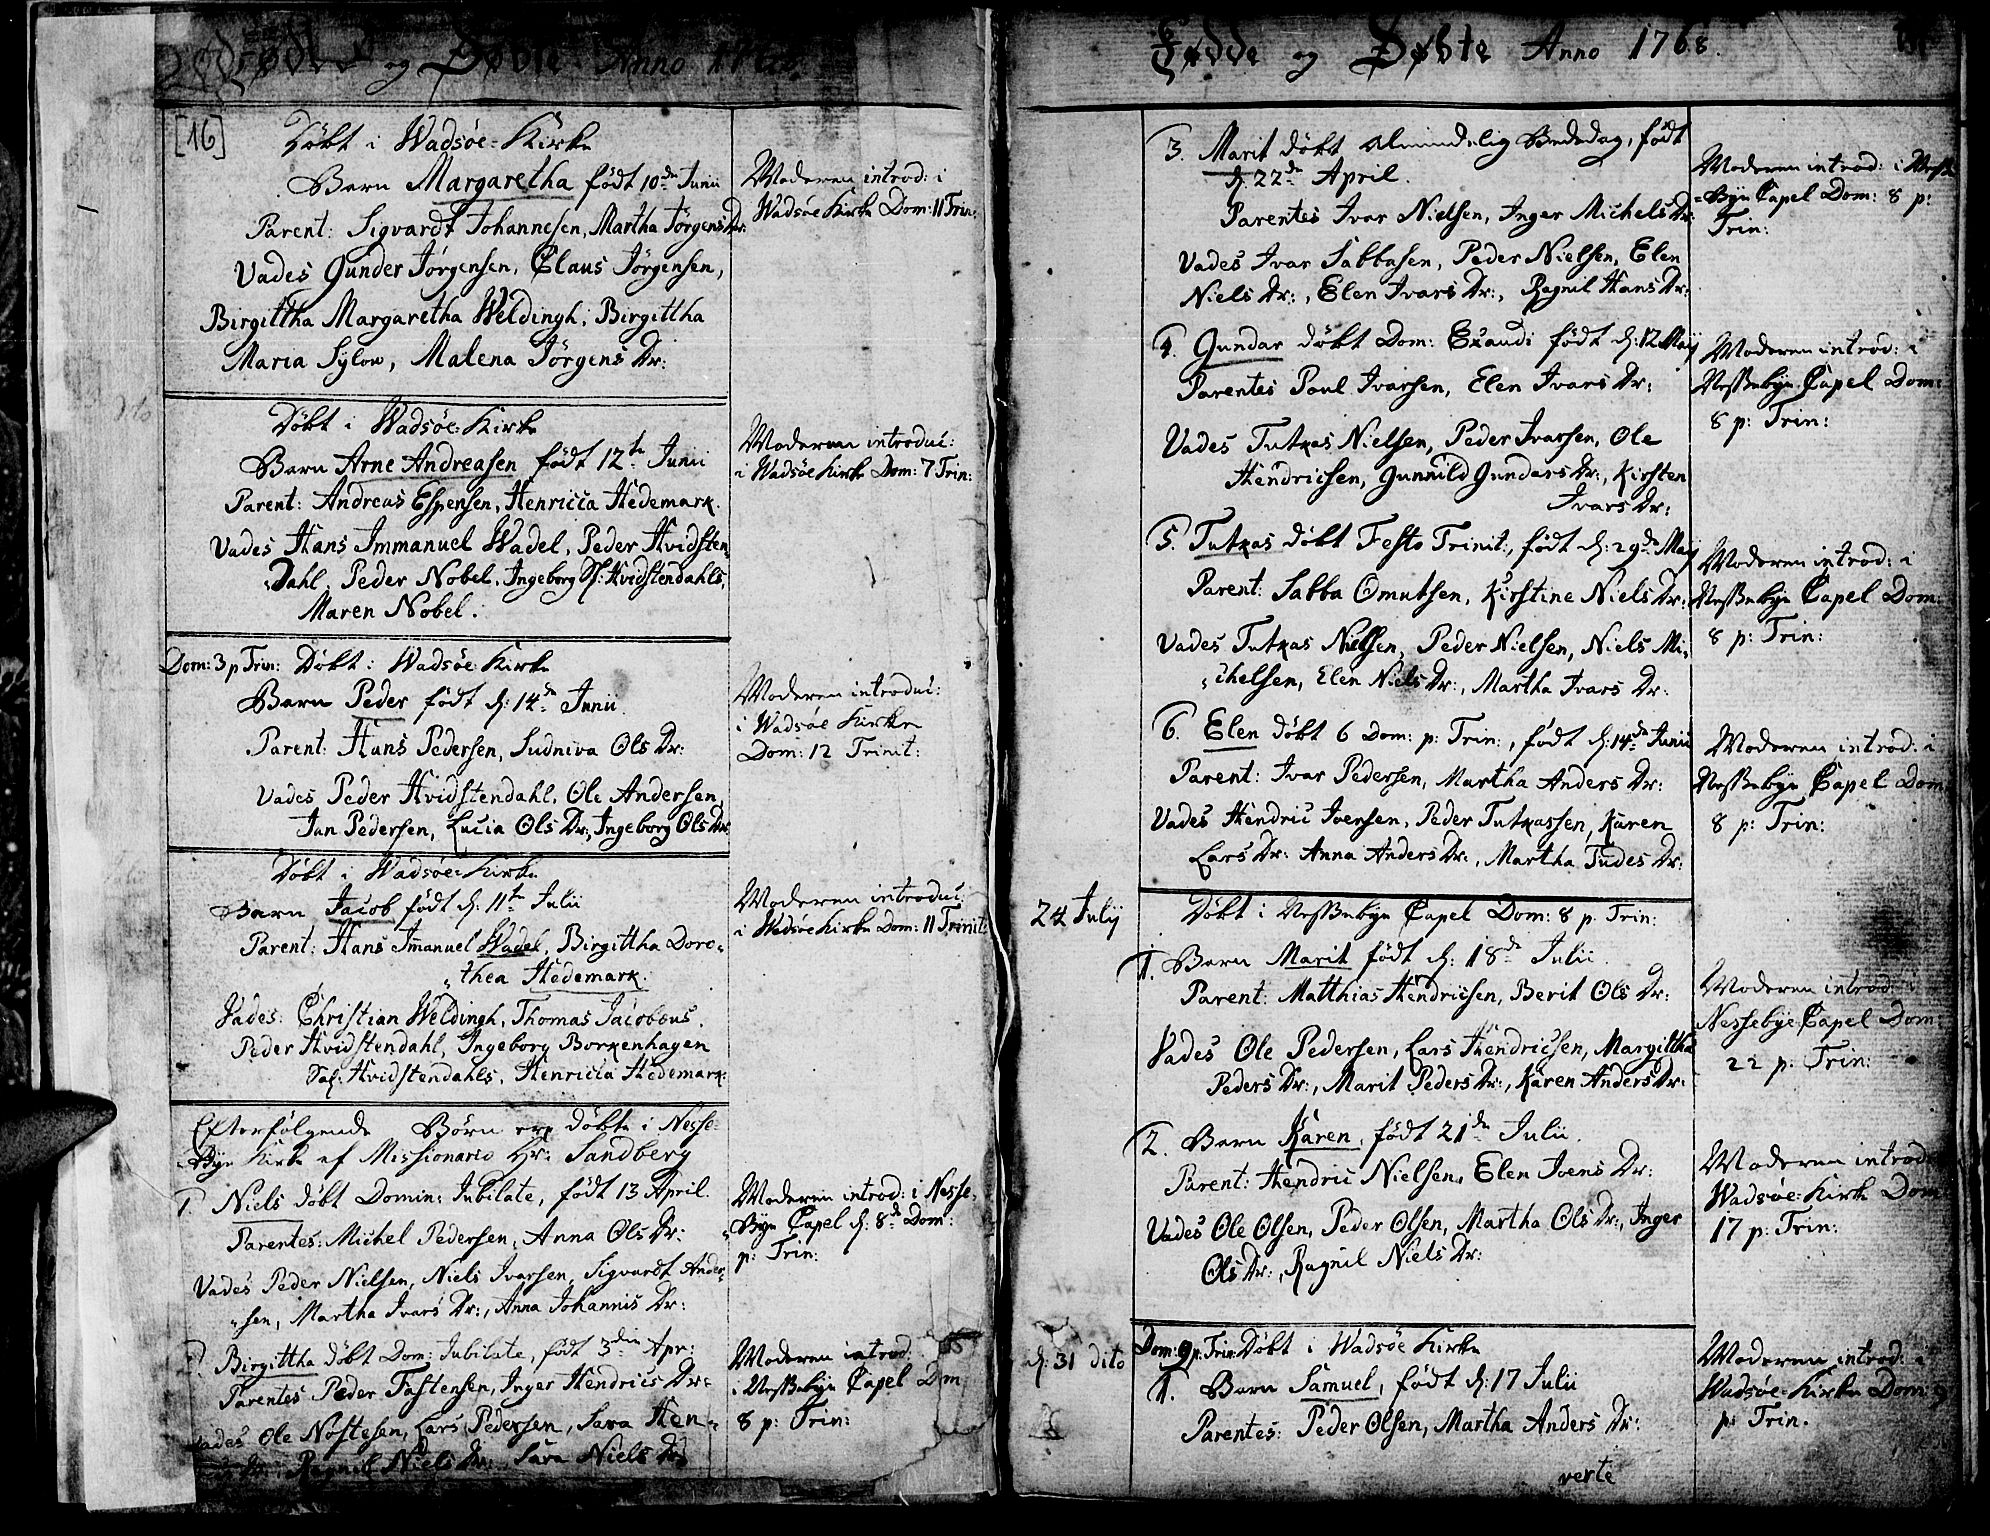 Fødde og Døbte Anno 1768.
[16]
Døbt i Wadsöe-Kirke
Barn Margaretha født 10de Junii
Parent: Sigvardt Johannesen, Martha Jörgens Dr:
Vades Gunder Jörgensen, Claus Jörgensen,
Birgittha Margaretha Weldingh, Birgittha
Maria Sylow, Malena Jörgens Dr:
Moderen introd: i
Wadsöe Kirke Dom: 11 Trin:
Döbt i Wadsöe-Kirke
Barn Arne Andreasen født 12te Junii
Parent: Andreas Espensen, Henricia Hedemark.
Vades Hans Immanuel Wadel, Peder Hvidsten-
Dahl, Peder Nobel, Ingeborg Sl: Hvidstendahls,
Maren Nobel.
Moderen introduc:
i Wadsöe Kirke Dom: 7 Trin:
Dom: 3 p Trin: Döbt i Wadsöe Kirke
Barn Peder født d: 14de Junii
Parent: Hans Pedersen, Sudniva Ols Dr:
Vades Peder Hvidstendahl, Ole Andersen,
Jan Pedersen, Lucia Ols Dr:, Ingeborg Ols Dr:
Moderen introduc:
i Wadsöe Kirke
Dom: 12 Trinit:
Döbt i Wadsöe-Kirke
Barn Jacob født d: 11te Julii
Parent: Hans Imanuel Wadel, Birgittha Doro-
thea Hedemark.
Vades: Christian Weldingh, Thomas Jacobæus,
Peder Hvidstendahl, Ingeborg Borkenhagen
Sal: Hvidstendahls, Henricia Hedemark.
Moderen introduc:
i Wadsöe Kirke Dom: 11 Trinit:
Efterfölgende Börn ere döbte i Nesse-
Bye Kirke af Missionario Hr: Sandberg
1. Niels döbt Domin: Jubilate, født 13 April.
Parentes: Michel Pedersen, Anna Ols Dr:
Vades Peder Nielsen, Niels Ivarsen, Sigvardt Ander-
sen, Martha Ivars Dr:, Anna Johannis Dr:
Moderen introd: i Nesse-
Bye Capel d: 8de Dom:
p: Trin:
2. Birgittha döbt Dom: Jubilate, født 3die Apr:
Parentes Peder Fastensen, Inger Hendrics Dr:
Vades Ole Nostesen, Lars Pedersen, Sara Hen-
Ragnil Niels Dr: Sara Niels Dr:
Moderen introd:
i Nessebye Capel Dom:
8 p: Trin:
Fødde og Døbte Anno 1768.
3. Marit döbt Almindelig Bededag, födt
d: 22de April.
Parentes Ivar Nielsen, Inger Michels Dr:
Vades Ivar Sabbasen, Peder Nielsen, Elen
Niels Dr:, Elen Ivars Dr:, Ragnil Hans Dr:
Moderen introd: i Nesse-
Bye Capel Dom: 8 p:
Trin:
4. Gundar döbt Dom: Exaudi født d: 12 Maij
Parentes Poul Ivarsen, Elen Ivars Dr:
Vades Tutkas Nielsen, Peder Ivarsen, Ole
Hendricsen, Gunnild Gundars Dr:, Kirsten
Ivars Dr:
Moderen introd: i
Nessebye Capel Dom:
8 p: Trin:
5. Tutkas döbt Festo Trinit:, født d: 29de Maij
Parent: Sabba Omutsen, Kirstine Niels Dr:
Vades Tutkas Nielsen, Peder Nielsen, Niels Mi-
chelsen, Elen Niels Dr:, Martha Ivars Dr:
Moderen introd: i
Nessebye Capel Dom:
8 p: Trin:
6. Elen döbt 6 Dom: p: Trin:, födt d: 14de Junii
Parent: Ivar Pedersen, Martha Anders Dr:
Vades Hendric Joensen, Peder Tutkassen, Karen
Lars Dr: Anna Anders Dr:, Martha Tudes Dr:
Moderen introd: i
Nessebye Capel Dom:
8 p: Trin:
24 Julij
Döbt i Nessebye Capel Dom: 8 p: Trin:
1. Barn Marit født d: 18de Julii.
Parent: Matthias Hendricsen, Berit Ols Dr:
Vades Ole Pedersen, Lars Hendricsen, Margittha
Peders Dr:, Marit Peders Dr:, Karen Anders Dr:
Moderen introd: i
Nessebye Capel Dom:
22 p: Trin:
2. Barn Karen, födt 21de Julii.
Parent: Hendric Nielsen, Elen Joens Dr:
Vades Ole Olsen, Peder Olsen, Martha Ols Dr:, Inger
Ols Dr:, Ragnil Niels Dr:
Moderen introd:
Wadsöe-Kirke Dom:
17 p: Trin:
d: 31 dito
Dom: 9 p: Trin: Döbt i Wadsöe Kirke
1. Barn Samuel, födt d: 17 Julii
Parentes: Peder Olsen, Martha Anders Dr:
Moderen introd: i
Wadsöe-Kirke Dom: 9
p: Trin.
verte